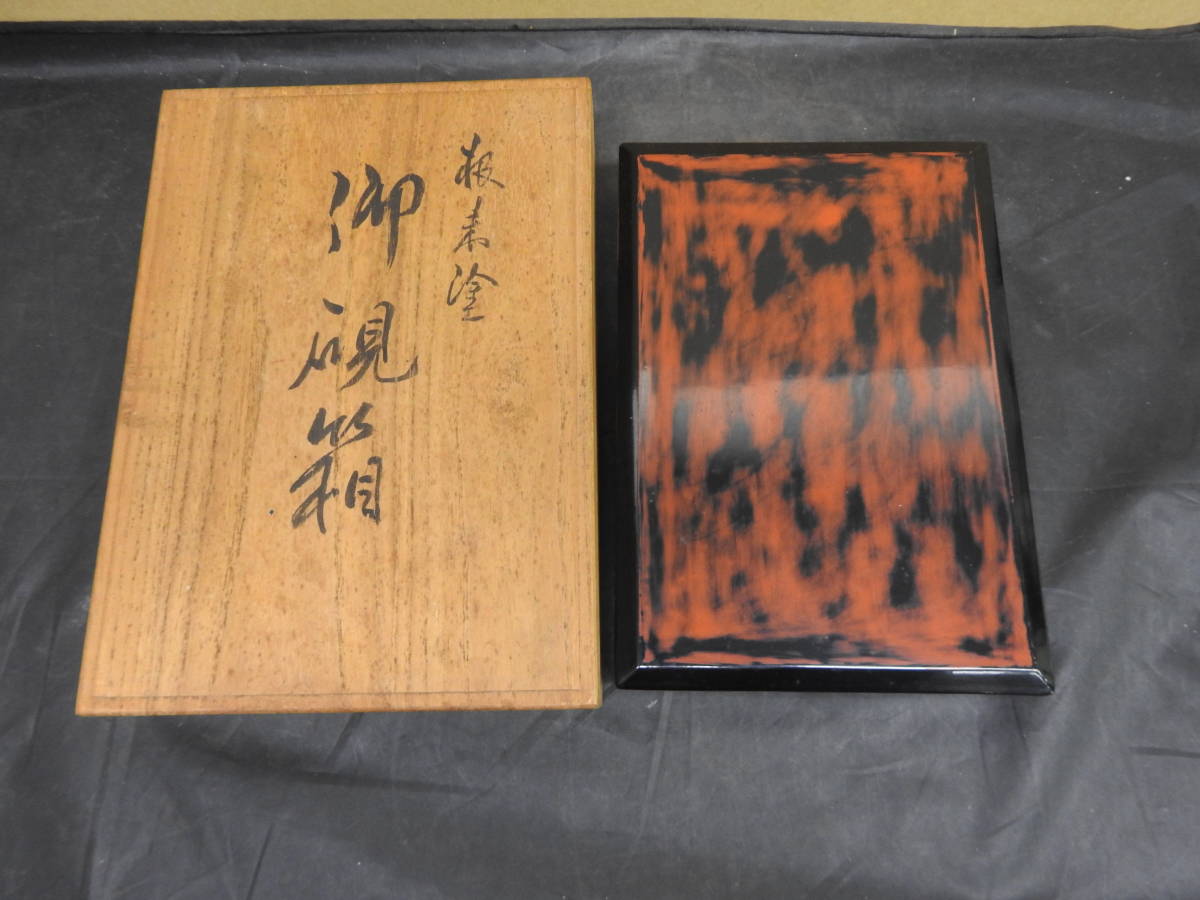 根来塗
御硯箱